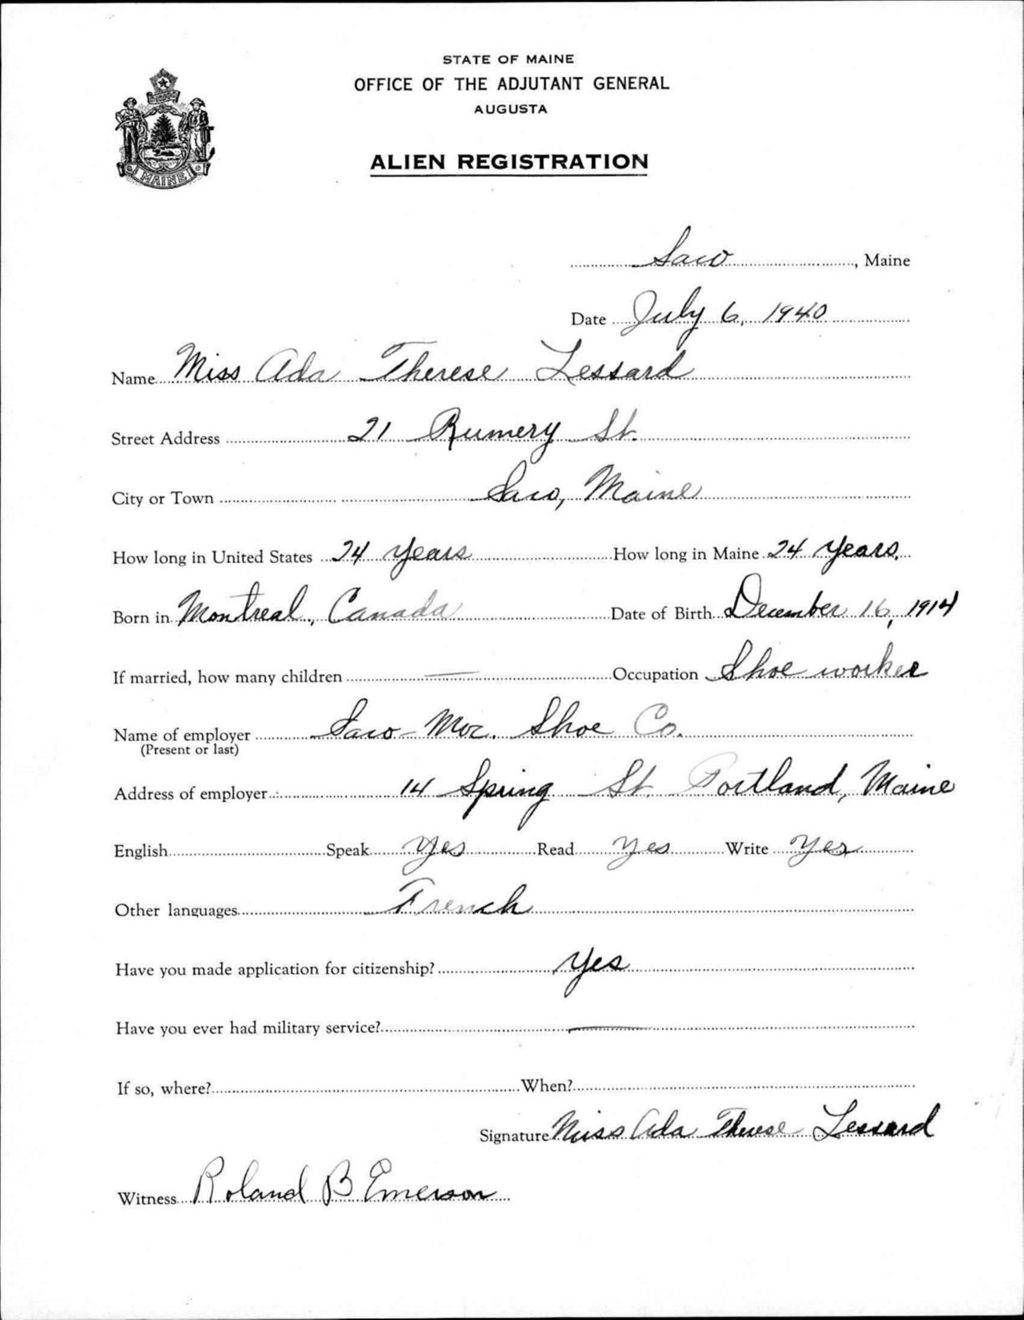 STATE OF MAINE
OFFICE OF THE ADJUTANT GENERAL
AUGUSTA
ALIEN REGISTRATION
MAINE
Saco, Maine
Date July 6, 1940
Name Miss Ada Therese Lessard
Street Address 21 Rumery St.
City or Town Saco, Maine
How long in United States 24 years How long in Maine 24 years.
Born in Montreal, Canada Date of Birth December 16, 1914
If married, how many children — Occupation Shoe worker
Name of employer Saco-Moc. Shoe Co.
(Present or last)
Address of employer 14 Spring St. Portland, Maine
English Speak Yes Read Yes Write Yes
Other languages French
Have you made application for citizenship? Yes
Have you ever had military service? —
If so, where? When?
Signature Miss Ada Therese Lessard
Witness Roland B Emerson